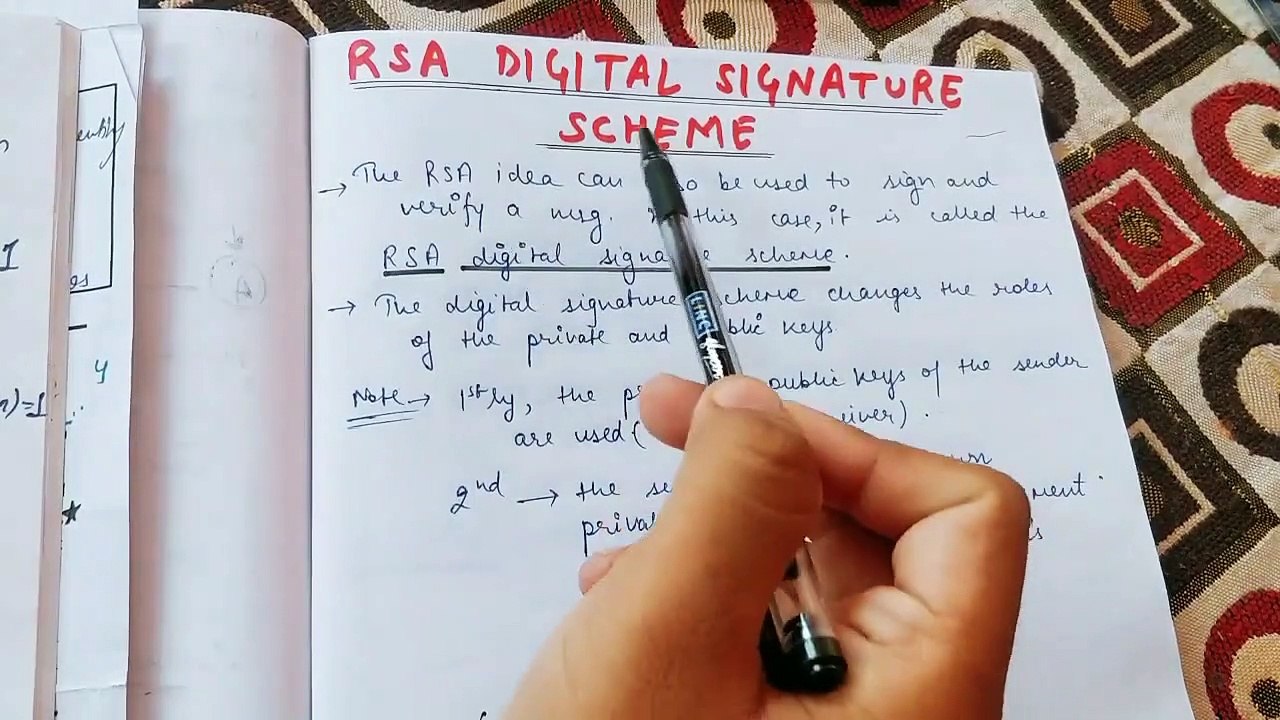 RSA DIGITAL SIGNATURE
SCHEME
→ The RSA idea can so be used to sign and
verify a msg. this case, it is called the
RSA digital signa e scheme.
→ The digital signature scheme changes the roles
of the private and blic keys
Note → 1stly, the p public keys of the sender
are used ( eiver).
2nd → the se ment
privat
LINC
1
y
n)=1